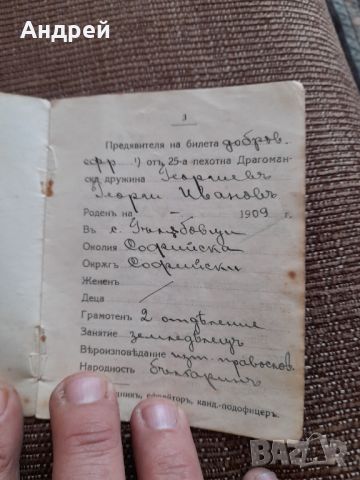 Андрей
3
Предявителя на билета добров.
ефр ¹) отъ 25-а пехотна Драгоман-
ска дружина Георгиевъ
Георги Ивановъ
Роденъ на - 1909 г.
Въ с. Гълѫбовци
Околия Софийска
Окрѫгъ Софийски
Жененъ
Деца
Грамотенъ 2 отдѣление
Занятие земледѣлецъ
Вѣроизповѣдание изт. православ.
Народность българинъ
никъ, ефрейторъ, канд.-подофицеръ.
bazar